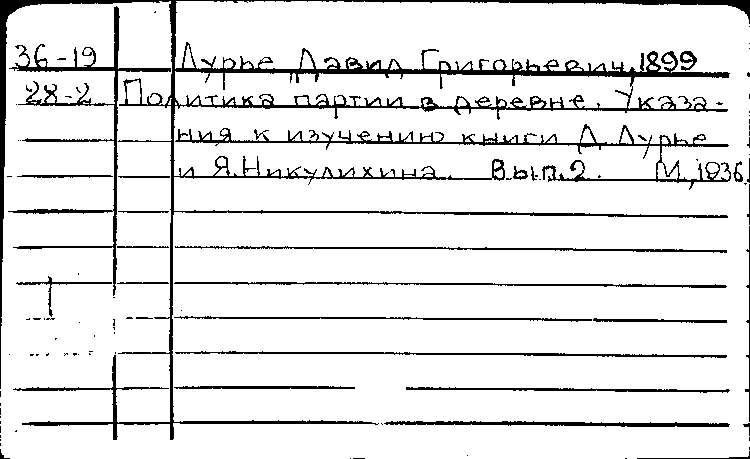 36-19 Лурье, Давид Григорьевич, 1899
28-2 Политика партии в деревне. Указа-
ния к изучению книги Д. Лурье
и Я. Никулихина. Вып. 2. М., 1936.